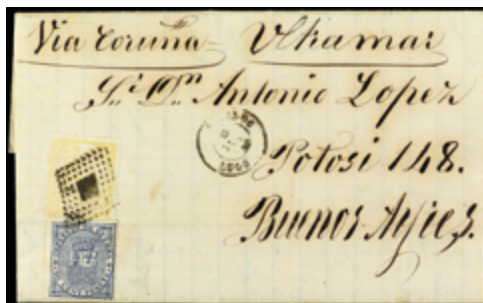 Via Coruña - Ultramar
Sr. Dn. Antonio Lopez
Potosi 148.
Buenos-Ayres.
LUGO